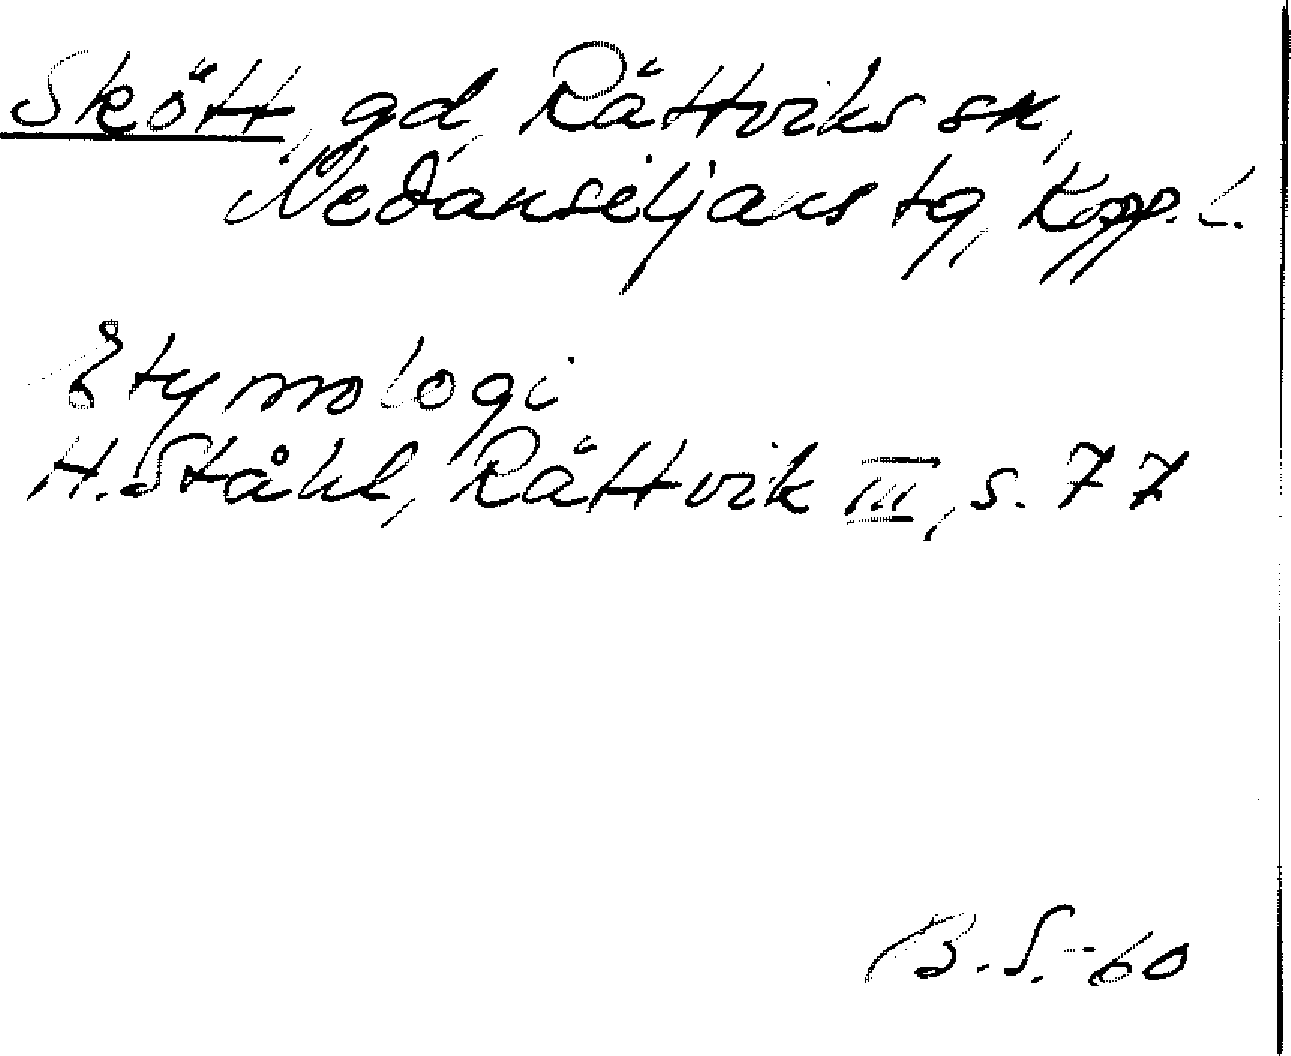 Skött, gd, Rättviks sn,
Nedansiljans tg, Kopp. l.
Etymologi
H. Ståhl, Rättvik III, s. 77
B.S.-60